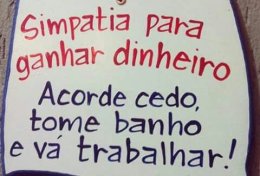 Simpatia para
ganhar dinheiro
Acorde cedo,
tome banho
e vá trabalhar!